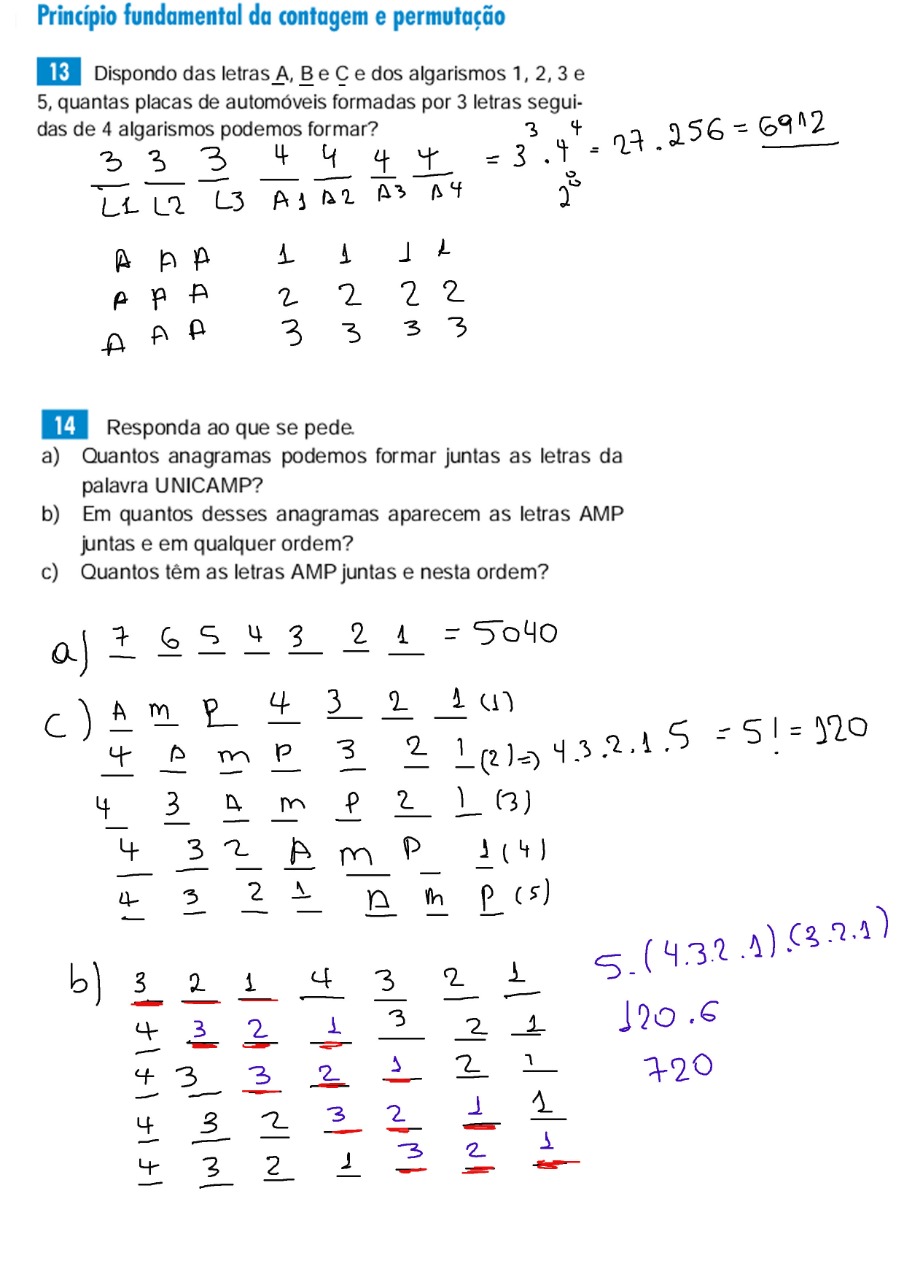 Princípio fundamental da contagem e permutação
13 Dispondo das letras A, B e C e dos algarismos 1, 2, 3 e
5, quantas placas de automóveis formadas por 3 letras segui-
das de 4 algarismos podemos formar?
3 3 3 4 4 4 4 = 3³ . 4⁴ = 27 . 256 = 6912
L1 L2 L3 A1 A2 A3 A4 2⁸
A A A 1 1 1 1
A A A 2 2 2 2
A A A 3 3 3 3
14 Responda ao que se pede.
a) Quantos anagramas podemos formar juntas as letras da
palavra UNICAMP?
b) Em quantos desses anagramas aparecem as letras AMP
juntas e em qualquer ordem?
c) Quantos têm as letras AMP juntas e nesta ordem?
a) 7 6 5 4 3 2 1 = 5040
c) A m P 4 3 2 1 (1)
4 A m P 3 2 1 (2) => 4.3.2.1.5 = 5! = 120
4 3 A m P 2 1 (3)
4 3 2 A m P 1 (4)
4 3 2 1 A m P (5)
b) 3 2 1 4 3 2 1 5.(4.3.2.1).(3.2.1)
4 3 2 1 3 2 1 120.6
4 3 3 2 1 2 1 720
4 3 2 3 2 1 1
4 3 2 1 3 2 1